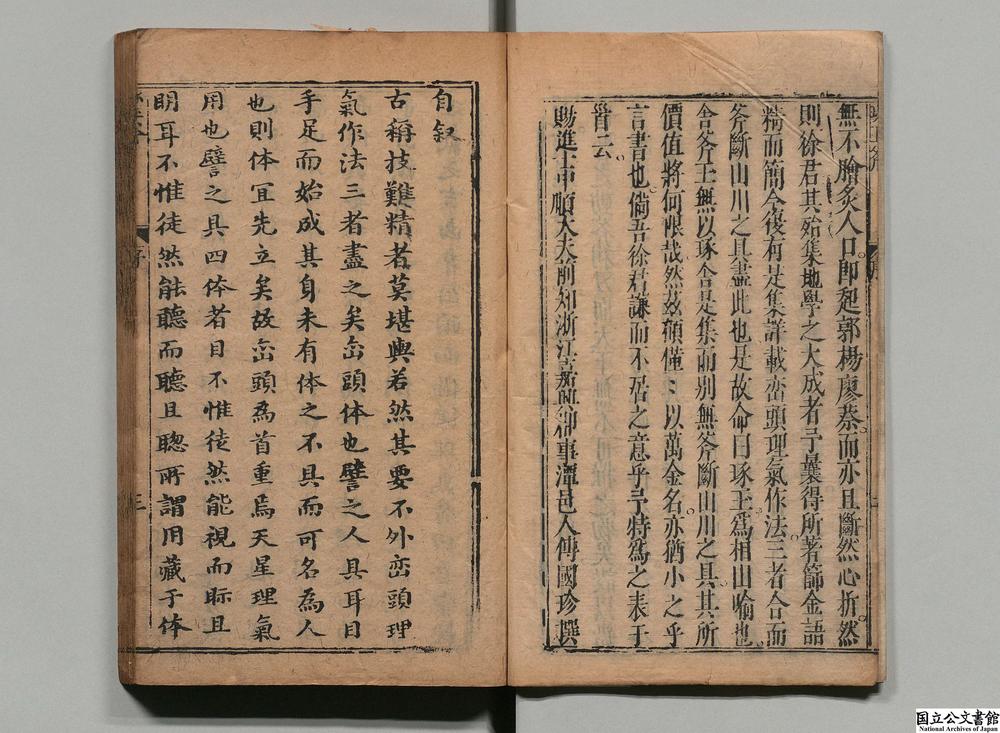 無不膾炙人口即起郭楊廖蔡而亦且斷然心折然
則徐君其始集地學之大成者乎曩得所著篩金語
精而簡今後有是集詳載巒頭理氣作法三者合而
斧斷山川之具盡此也是故命曰琢玉為相山喻也
舍斧玉無以琢舍是集而別無斧斷山川之具其所
價值將何限哉然茲顏僅〻以萬金名亦猶小之乎
言書也倘吾徐君謙而不居之意乎予特為之表于
首云
賜進士中順大夫前知浙江嘉府事潭邑人傅國珍撰
自叙
古稱技難精者莫堪輿若然其要不外巒頭理
氣作法三者盡之矣巒頭体也譬之人具耳目
手足而始成其身未有体之不具而可名為人
也則体宜先立矣故巒頭為首重焉天星理氣
用也譬之具四体者目不惟徒然能視而际且
明耳不惟徒然能聽而聽且聰所謂用藏于体
序
三
国立公文書館
National Archives of Japan